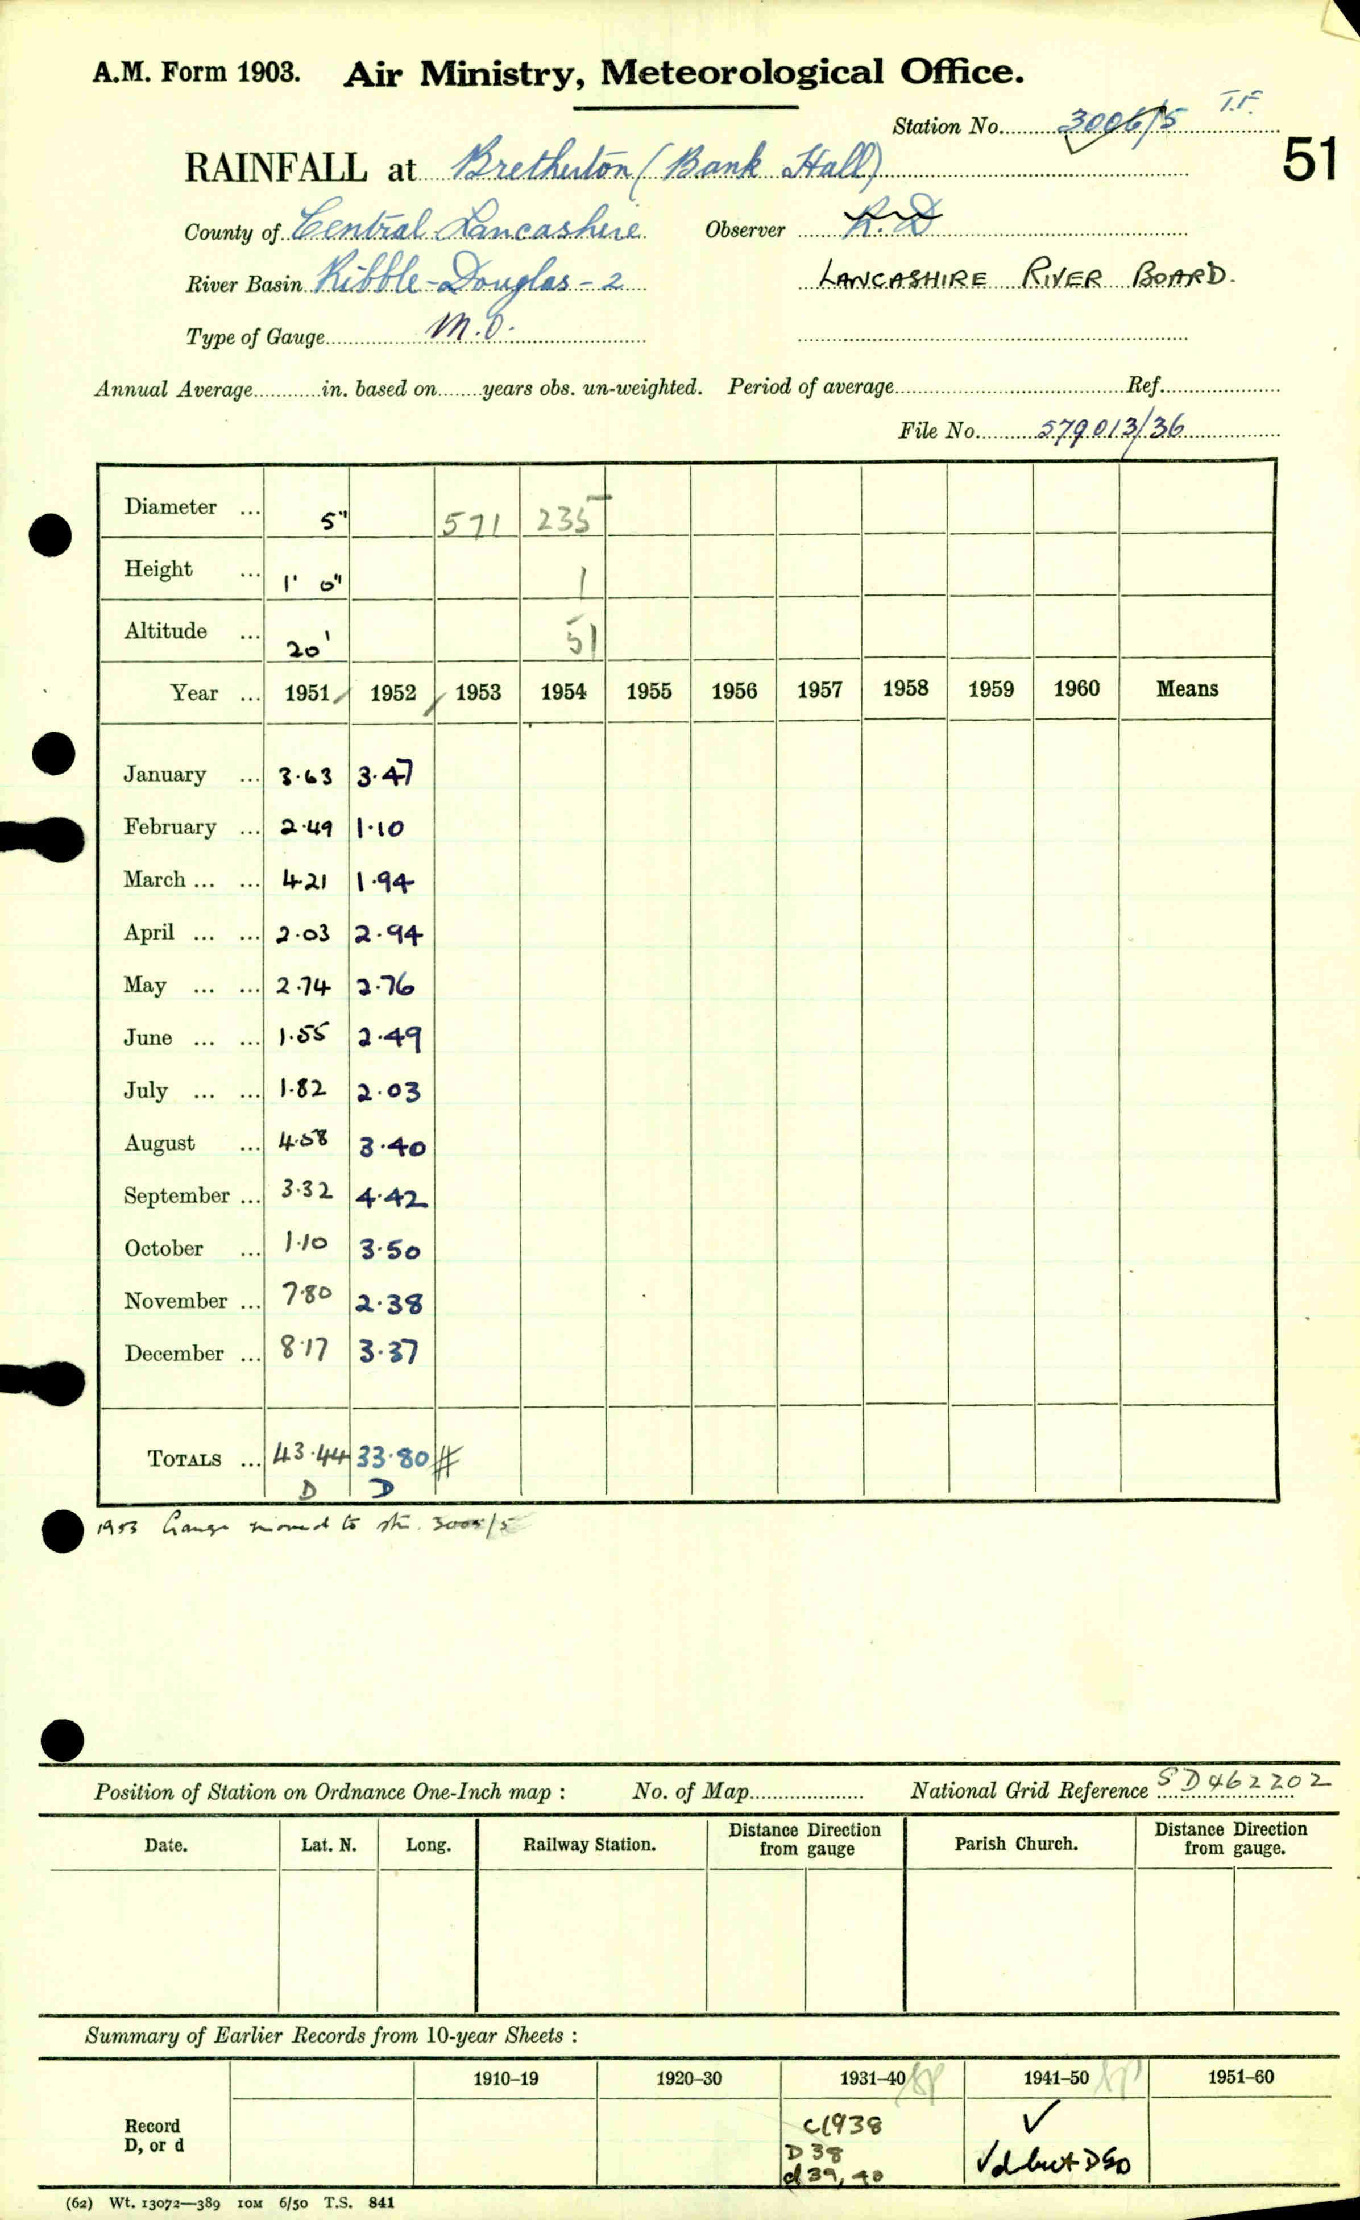 A.M. Form 1903. Air Ministry, Meteorological Office.
Station No. 3006/5 T.F.
51
RAINFALL at Bretherton (Bank Hall)
County of Central Lancashire Observer R.D
River Basin Ribble-Douglas-2 LANCASHIRE RIVER BOARD.
Type of Gauge M.O.
Annual Average in. based on years obs. un-weighted. Period of average Ref.
File No. 579013/36
Diameter ... 5" 571 235
Height ... 1' 0" 1
Altitude ... 20' 51
Year ... 1951 1952 1953 1954 1955 1956 1957 1958 1959 1960 Means
January ... 3.63 3.47
February ... 2.49 1.10
March ... ... 4.21 1.94
April ... ... 2.03 2.94
May ... ... 2.74 2.76
June ... ... 1.55 2.49
July ... ... 1.82 2.03
August ... 4.58 3.40
September ... 3.32 4.42
October ... 1.10 3.50
November ... 7.80 2.38
December ... 8.17 3.37
TOTALS ... 43.44 33.80 #
D D
1953 Gauge moved to stn. /5
Position of Station on Ordnance One-Inch map : No. of Map National Grid Reference SD462202
Date. Lat. N. Long. Railway Station. Distance from Direction gauge Parish Church. Distance from Direction gauge.
Summary of Earlier Records from 10-year Sheets :
1910–19 1920–30 1931–40 1941–50 1951–60
Record D, or d
c1938 ✓
D 38
d 39, 40 √d but D50
(62) Wt. 13072—389 10M 6/50 T.S. 841